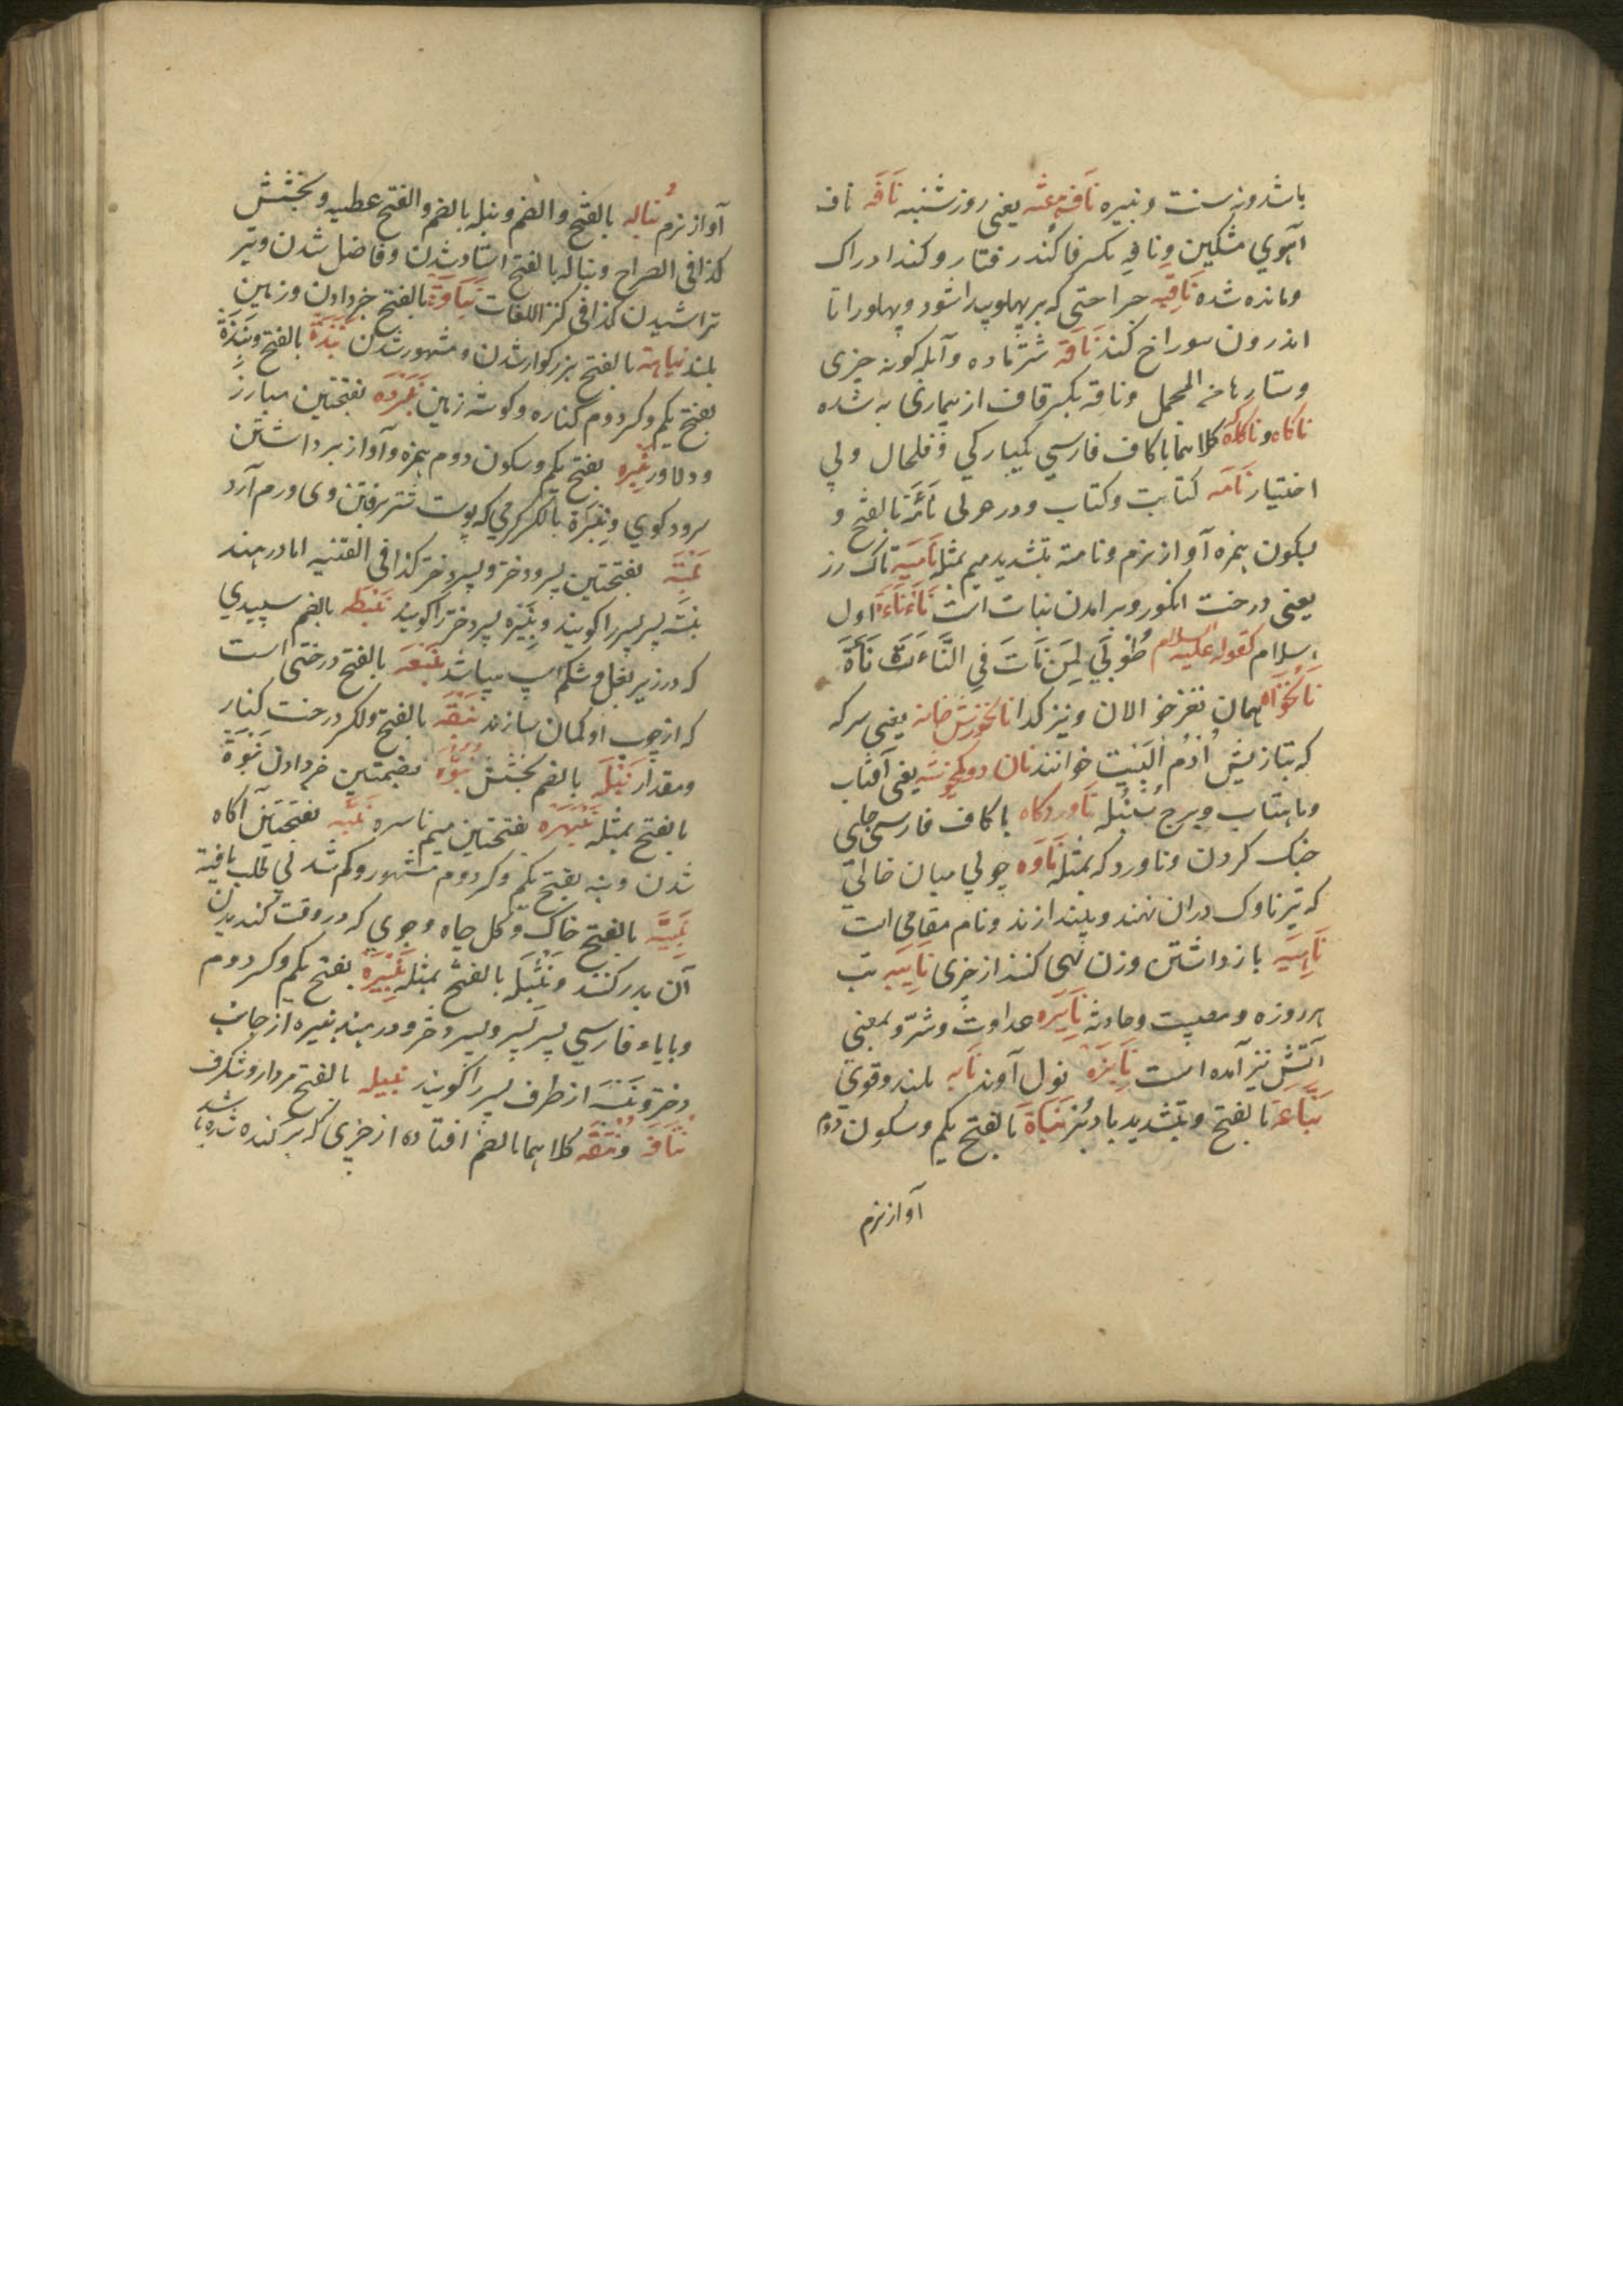 باشد و نه سنت و نبیره نافه هفته یعنی روز شنبه نافه ناف
آهوی مشکین و نافه بکسر فا کند رفتار و کند ادراک
و مانده شده ناقبه جراحتی که بر پهلو پیدا شود و پهلو را تا
اندرون سوراخ کند ناقه شتر ماده و آبله گونه چیزی
و ستارها من المجمل و ناقه بکسر قاف از بیماری به شده
ناکاه و ناکه کلاهما با کاف فارسی یکبارکی و فلحال و بی
اختیار نامه کتابت و کتاب و در عربی نامه بالفتح و
بسکون همزه آواز نرم و نامته بتشدید میم بمثله نامیه تاک رز
یعنی درخت انکور و برامدن نبات است نأنأه اول
اسلام کقوله علیه السلام طوبی لمن مات فی النأنأة
نانخواه همان نغز خوالان و نیز کدا نانخورش خانه یعنی سرکه
که بتازیش ادم البیت خوانند نان دو خونه یعنی آفتاب
و ماهتاب و برج سنبله ناوردکاه با کاف فارسی جای
جنک کردن و ناورد که بمثله ناوه چوبی میان خالی
که تیر ناوک دران نهند و بیندازند و نام مقامی است
ناهیه بازداشتن و زن نهی کننده از چیزی نایبه تب
هر روزه و مصیبت و حادثه نایره عداوت و شر و بمعنی
آتش نیز آمده است نایزه نول آوند نایه بلند و قوی
نباعة بالفتح و بتشدید با دبر نباة بالفتح یکم و سکون دوم
آواز نرم
آواز نرم نباله بالفتح و الضم و نبله بالضم و الفتح عطیه و بخشش
کذا فی الصراح و نباله بالفتح استاد شدن و فاضل شدن و تیر
تراشیدن کذا فی کنز اللغات نباوة بالفتح خبر دادن و زمین
بلند نباهه بالفتح بزرکوار شدن و مشهور شدن نبذه بالفتح و نبذة
بفتح یکم و کسر دوم کناره و کوشه زمین نبرده بفتحتین مبارز
و دلاور نبره بفتح یکم و سکون دوم همزه و آواز برداشتن
سرود کوی و نبرة بالکسر کرمی که پوست شتر رفتن وی ورم آرد
نبسه بفتحتین پسر و دختر و پسر دختر کذا فی القنیه اما در هند
نبسه پسر پسر را کویند و نبیره پسر دختر را کویند نبطه بالضم سپیدی
که در زیر بغل و شکم اسپ میباشد نبعه بالفتح درختی است
که از چوب او کمان سازند نبقه بالفتح و الکسر درخت کنار
و مقدار نبله بالضم بخشش نبوه بضمتین خبر دادن نبوة
بالفتح بمثله نبهره بفتحتین سیم ناسره نبه بفتحتین آکاه
شدن و نبه بفتح یکم و کسر دوم مشهور و کم شد بی طلب یافته
نبیثه بالفتح خاک و کل چاه و جوی که در وقت کندیدن
آن بدر کنند و نثیله بالفتح بمثله نبیره بفتح یکم و کسر دوم
و بایاء فارسی پسر پسر و پسر دختر و در هند نبیره از جانب
دختر و نبسه از طرف پسر را کویند نبیله بالفتح مردار و شکرف
نتافه و نتفه کلاهما بالضم افتاده از چیزی که برکنده شده باشد